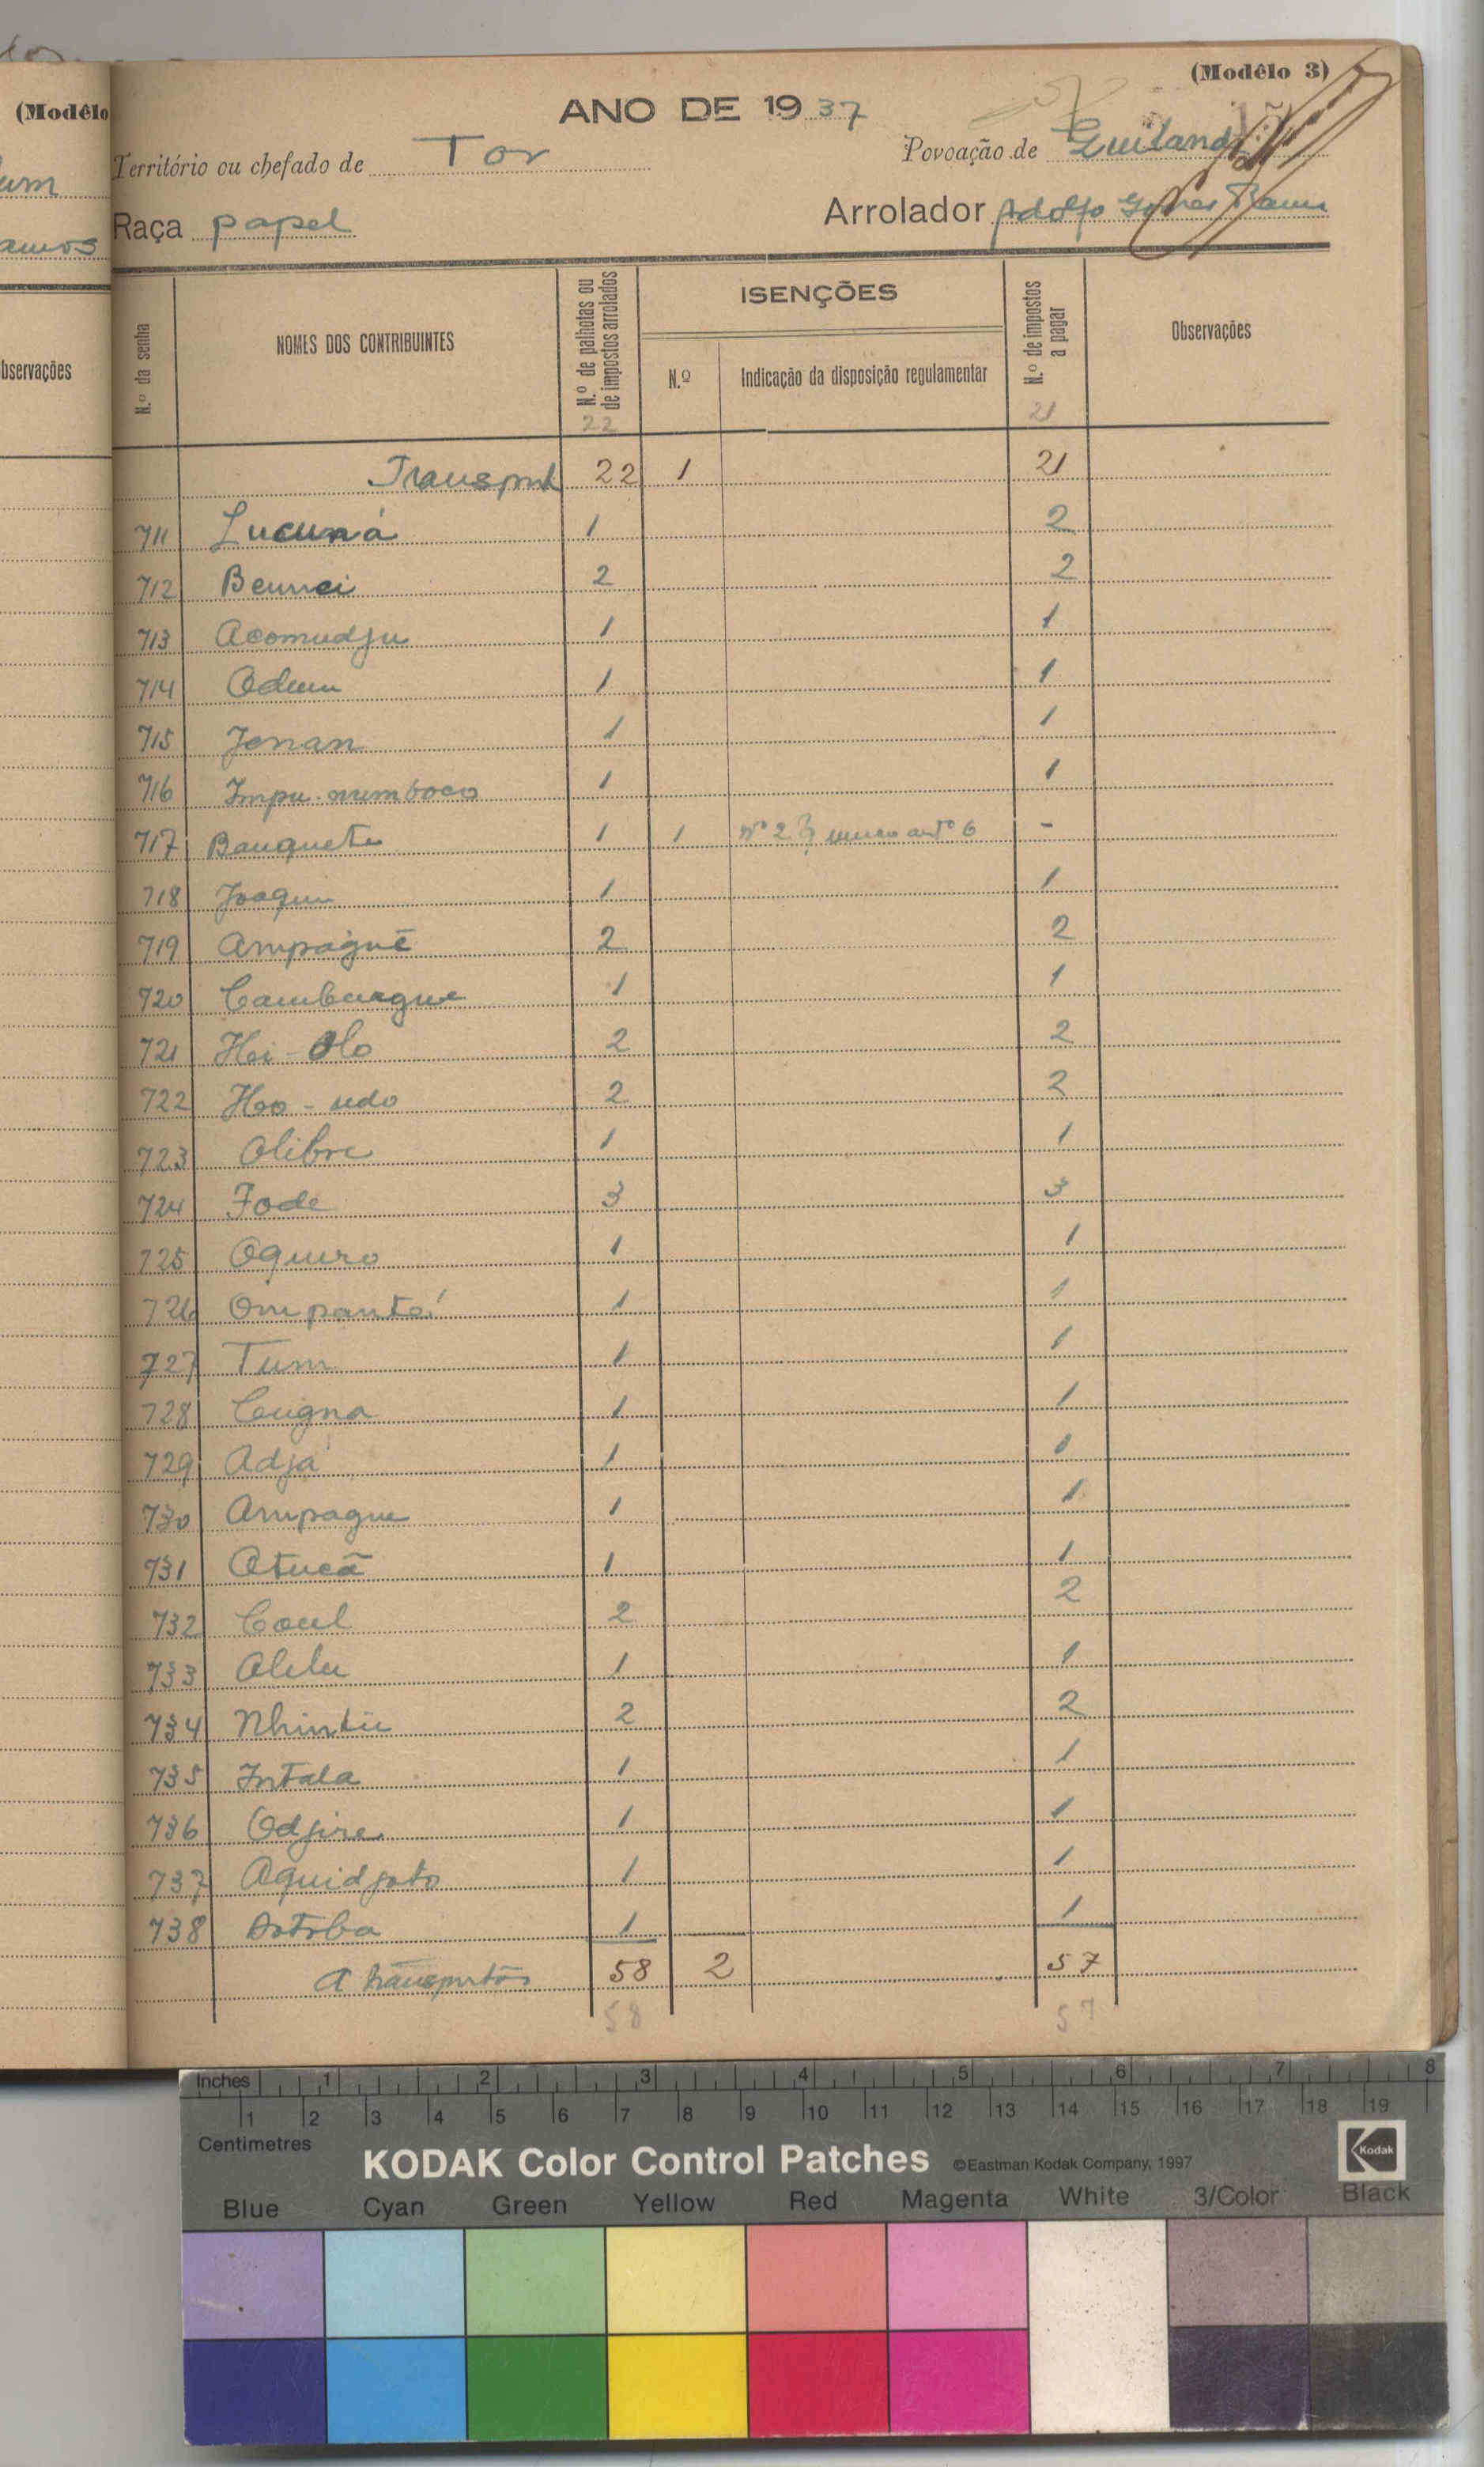 (Modêlo 3)
ANO DE 1937
Território ou chefado de Tor
Povoação de
Raça papel
Arrolador Adolfo Gomes Ramos
N.º da senha
NOMES DOS CONTRIBUINTES
N.º de palhotas ou de impostos arrolados
ISENÇÕES
N.º
Indicação da disposição regulamentar
N.º de impostos a pagar
Observações
22 21
Transport 22 1 21
711 Lucuná 1 2
712 2 2
713 Acomudju 1 1
714 Odum 1 1
715 Jonan 1 1
716 Impu-numboco 1 1
717 Bauquete 1 1 Nº 2 § unico artº 6 -
718 Joaqum 1 1
719 Ampaguê 2 2
720 1 1
721 Hei-Olo 2 2
722 Hoo-udo 2 2
723 Olibre 1 1
724 Fode 3 3
725 Oquiro 1 1
726 Ompanteí 1 1
727 Tum 1 1
728 Cugna 1 1
729 Adja 1 1
730 Ampague 1 1
731 Atucã 1 1
732 Coul 2 2
733 1 1
734 Nhintii 2 2
735 Intala 1 1
736 Odjire 1 1
737 Aquidjoto 1 1
738 1 1
A transportar 58 2 57
58 57
(Modêlo
um
amos
bservações
Inches 1 2 3 4 5 6 7 8
1 2 3 4 5 6 7 8 9 10 11 12 13 14 15 16 17 18 19
Centimetres
KODAK Color Control Patches ©Eastman Kodak Company, 1997 Kodak
Blue Cyan Green Yellow Red Magenta White 3/Color Black